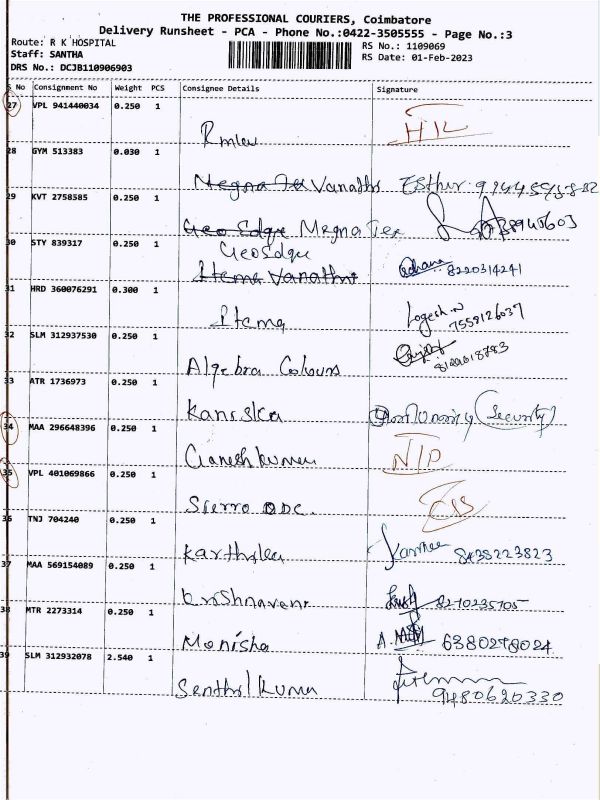 THE PROFESSIONAL COURIERS, Coimbatore
Delivery Runsheet - PCA - Phone No.:0422-3505555 - Page No.:3
Route: R K HOSPITAL
RS No.: 1109069
Staff: SANTHA
RS Date: 01-Feb-2023
DRS No.: DCJB110906903
S No Consignment No Weight PCS Consignee Details Signature
27 VPL 941440034 0.250 1
28 GYM 513383 0.030 1
Vanathi Esther
29 KVT 2758585 0.250 1
Geo Edge Megna Tex
30 STY 839317 0.250 1
Geo Edge
Itema Vanathi 8220314241
31 HRD 360076291 0.300 1
Itema Logesh.N
7558126037
32 SLM 312937530 0.250 1
Algebra Colours
33 ATR 1736973 0.250 1
Kaniska (Security)
34 MAA 296648396 0.250 1
Ganesh kumar N/D
35 VPL 401069866 0.250 1
Sierro ODC.
36 TNJ 704240 0.250 1
8438223823
37 MAA 569154089 0.250 1
Krishnaveni
38 MTR 2273314 0.250 1
Monisha 6380278024
39 SLM 312932078 2.540 1
Senthil Kumar
9480620330